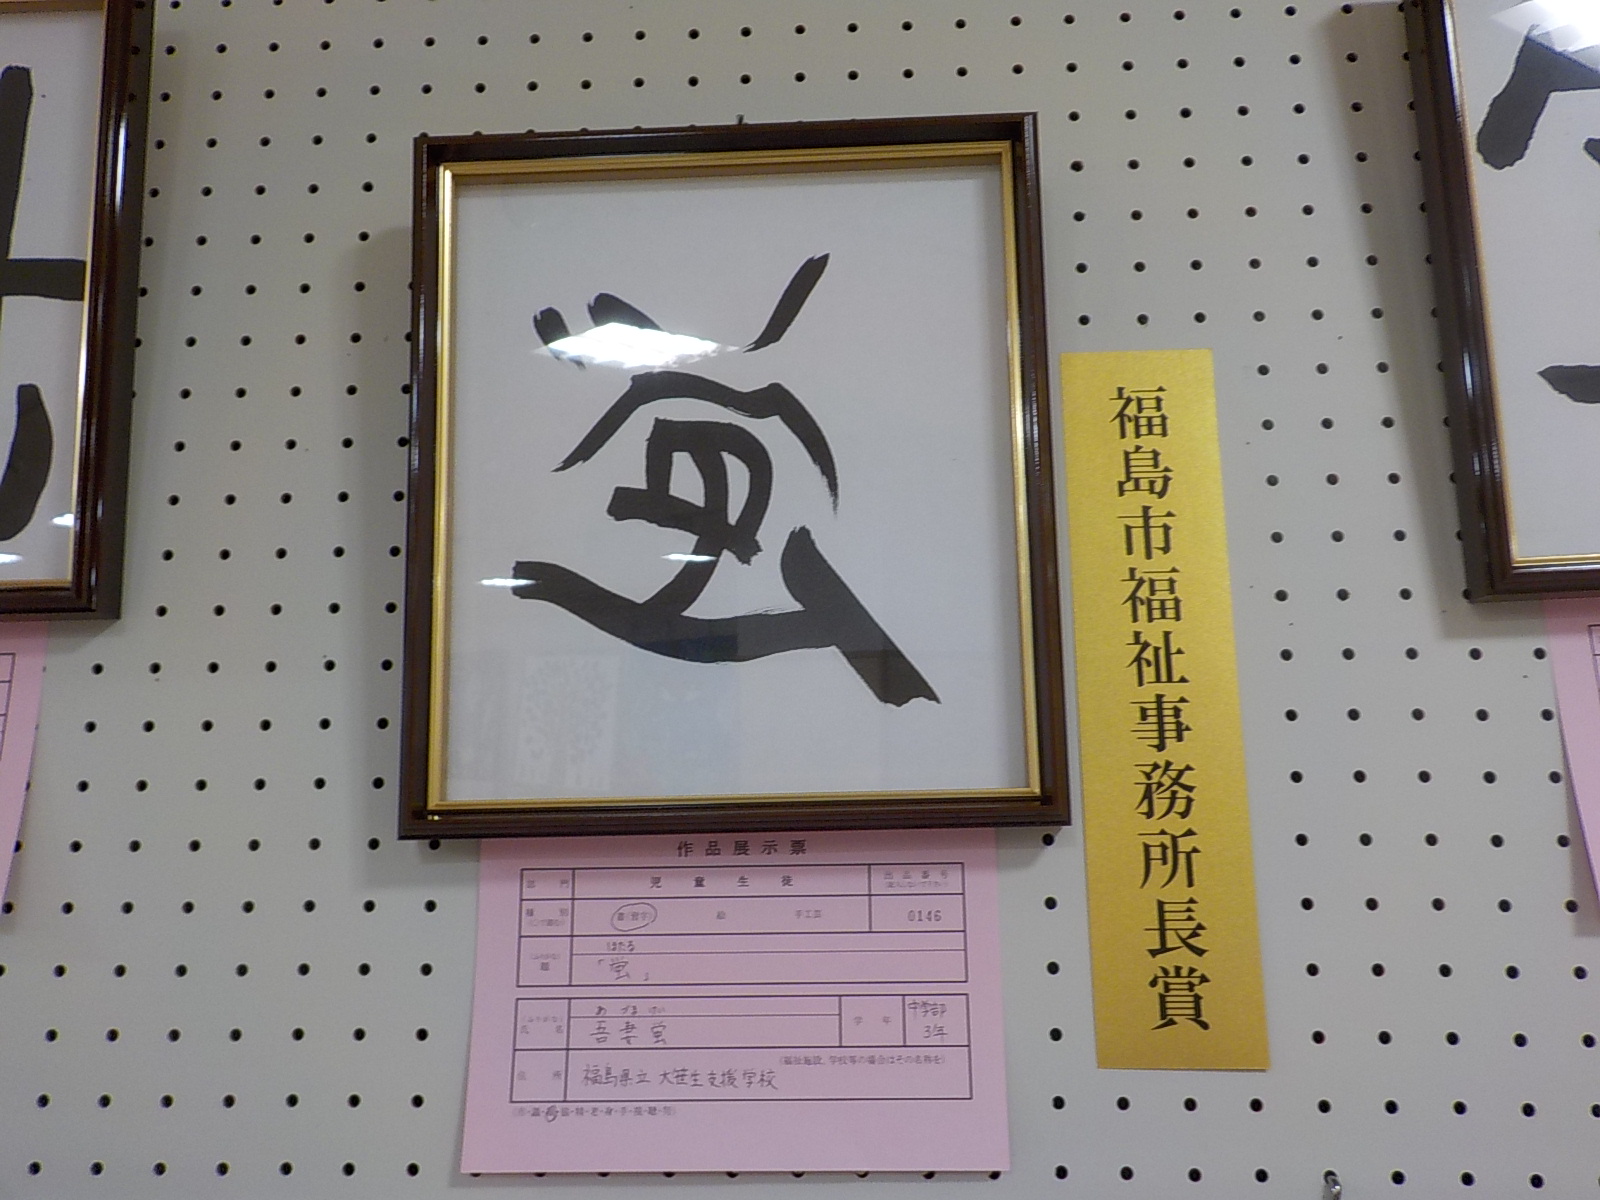 蛍
福島市福祉事務所長賞
作品展示票
部門 児童生徒 出品番号
種別 書(習字) 絵 手工芸 0146
ほたる
題 「蛍」
あづま けい
氏名 吾妻蛍 学年 中学部 3年
(福祉施設、学校等の場合はその名称を)
住所 福島県立大笹生支援学校